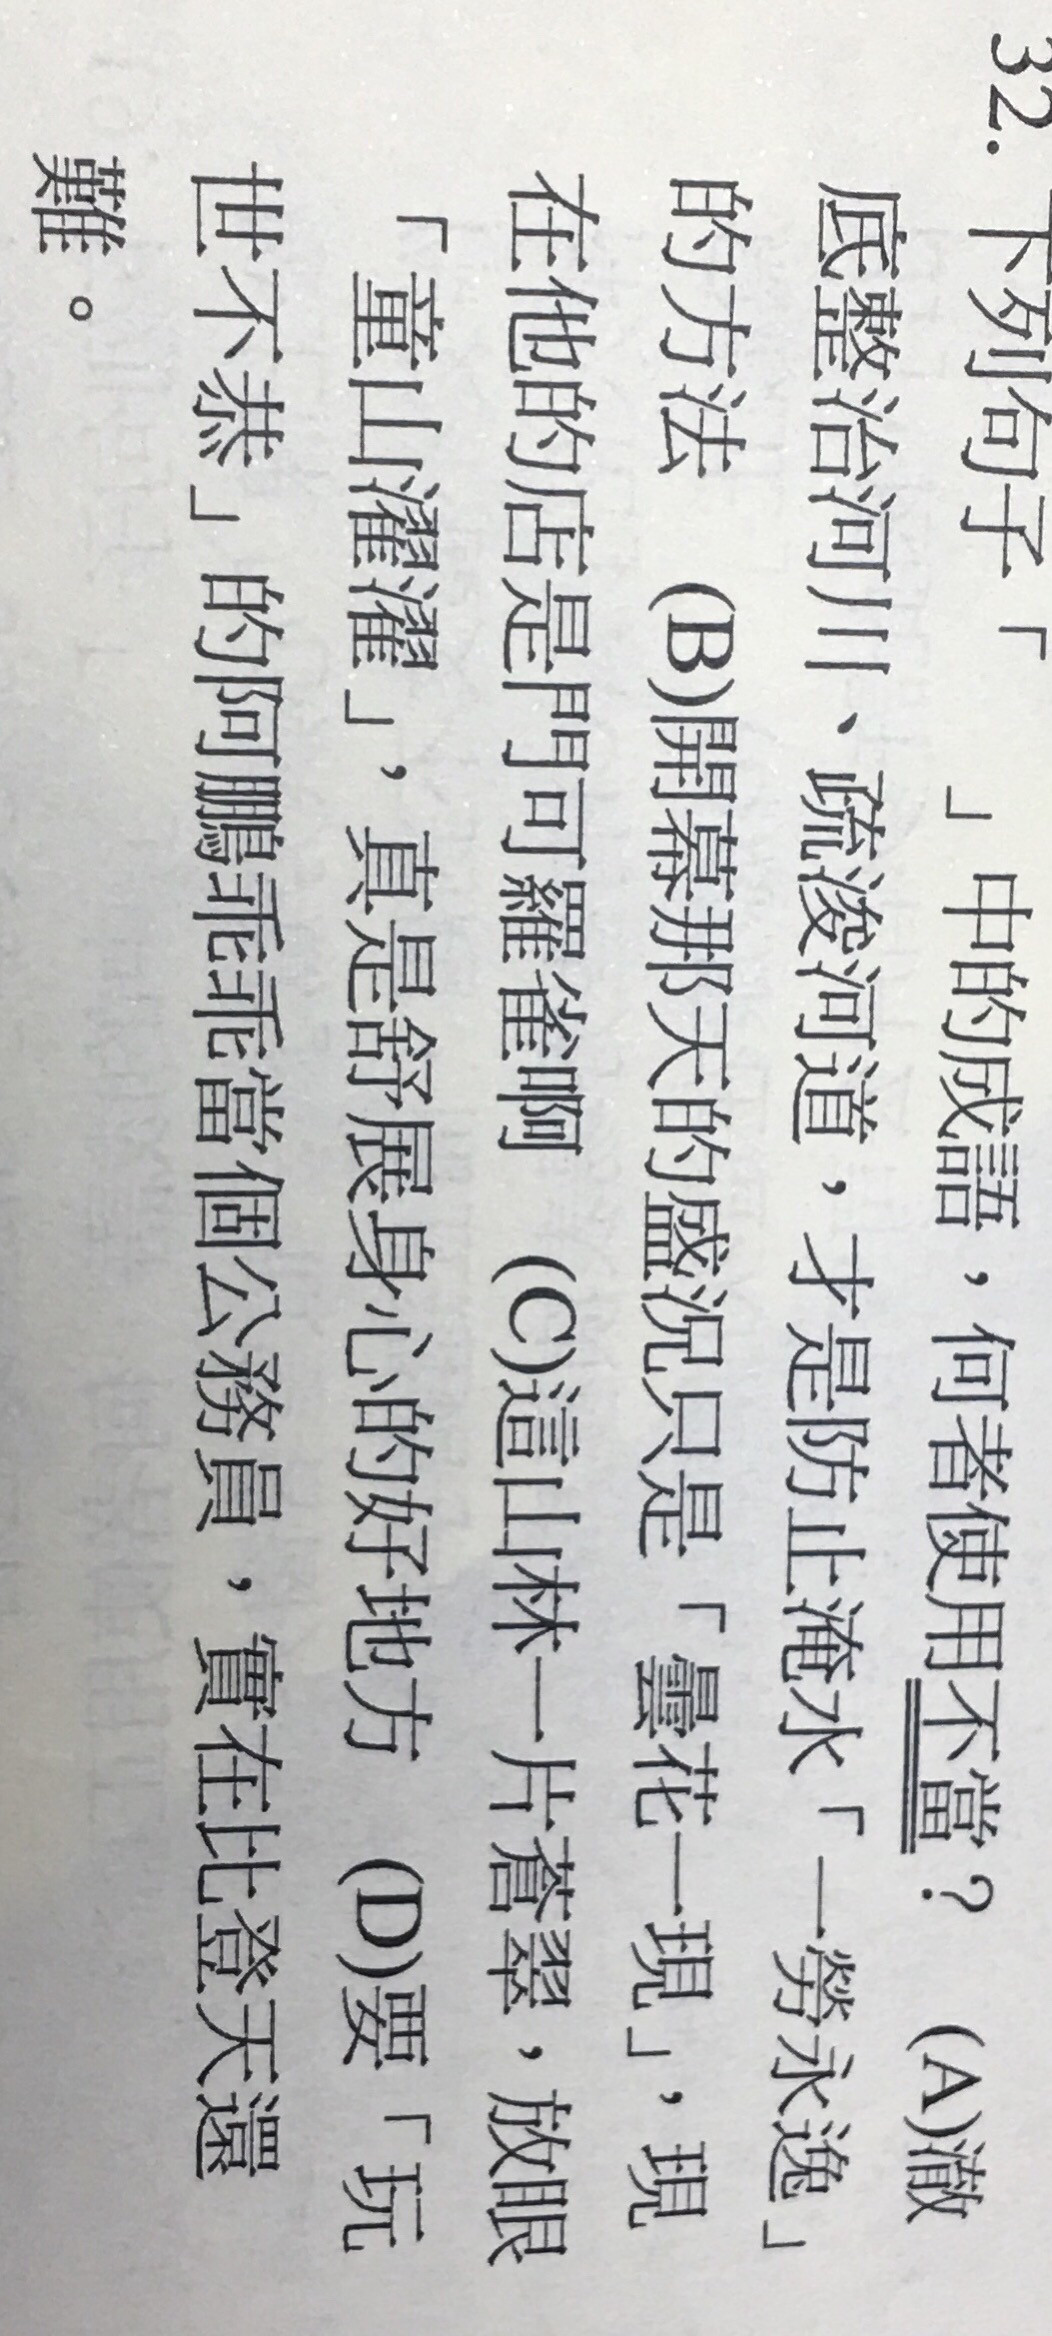 32. 下列句子「　　」中的成語，何者使用不當？　(A)澈
底整治河川、疏浚河道，才是防止淹水「一勞永逸」
的方法　(B)開幕那天的盛況只是「曇花一現」，現
在他的店是門可羅雀啊　(C)這山林一片蒼翠，放眼
「童山濯濯」，真是舒展身心的好地方　(D)要「玩
世不恭」的阿鵬乖乖當個公務員，實在比登天還
難。